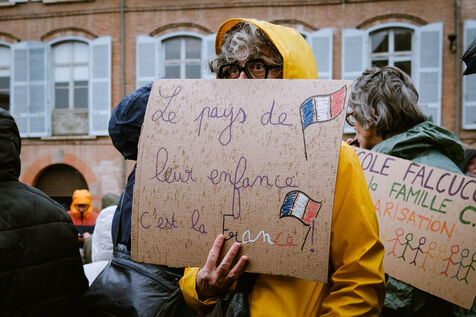 Le pays de
leur enfance
C'est la France !
OLE FALCUCC
FAMILLE C
ARISATION